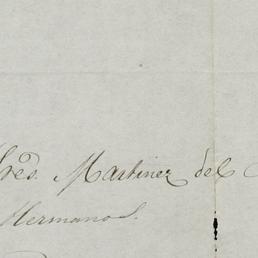 Sres. Martinez del
Hermanos.